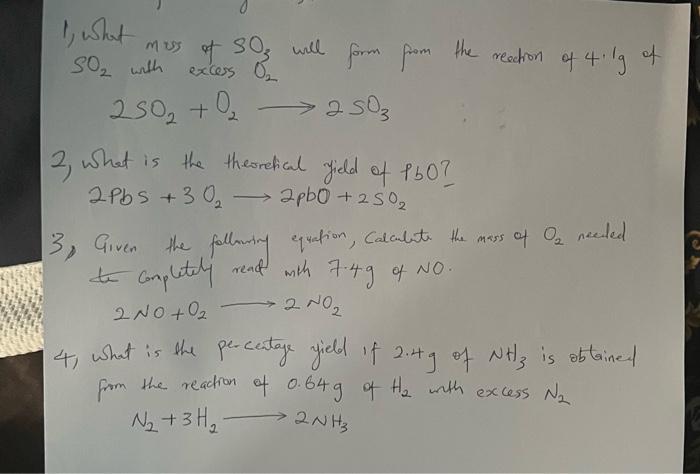 1, What mass of SO3 will form from the reaction of 4.1g of
SO2 with excess O2
2SO2 + O2 → 2SO3
2, What is the theoretical yield of PbO?
2PbS + 3O2 → 2pbO + 2SO2
3, Given the following equation, Calculate the mass of O2 needed
to completely react with 7.4g of NO.
2NO + O2 → 2NO2
4, What is the percentage yield if 2.4g of NH3 is obtained
from the reaction of 0.64g of H2 with excess N2
N2 + 3H2 → 2NH3